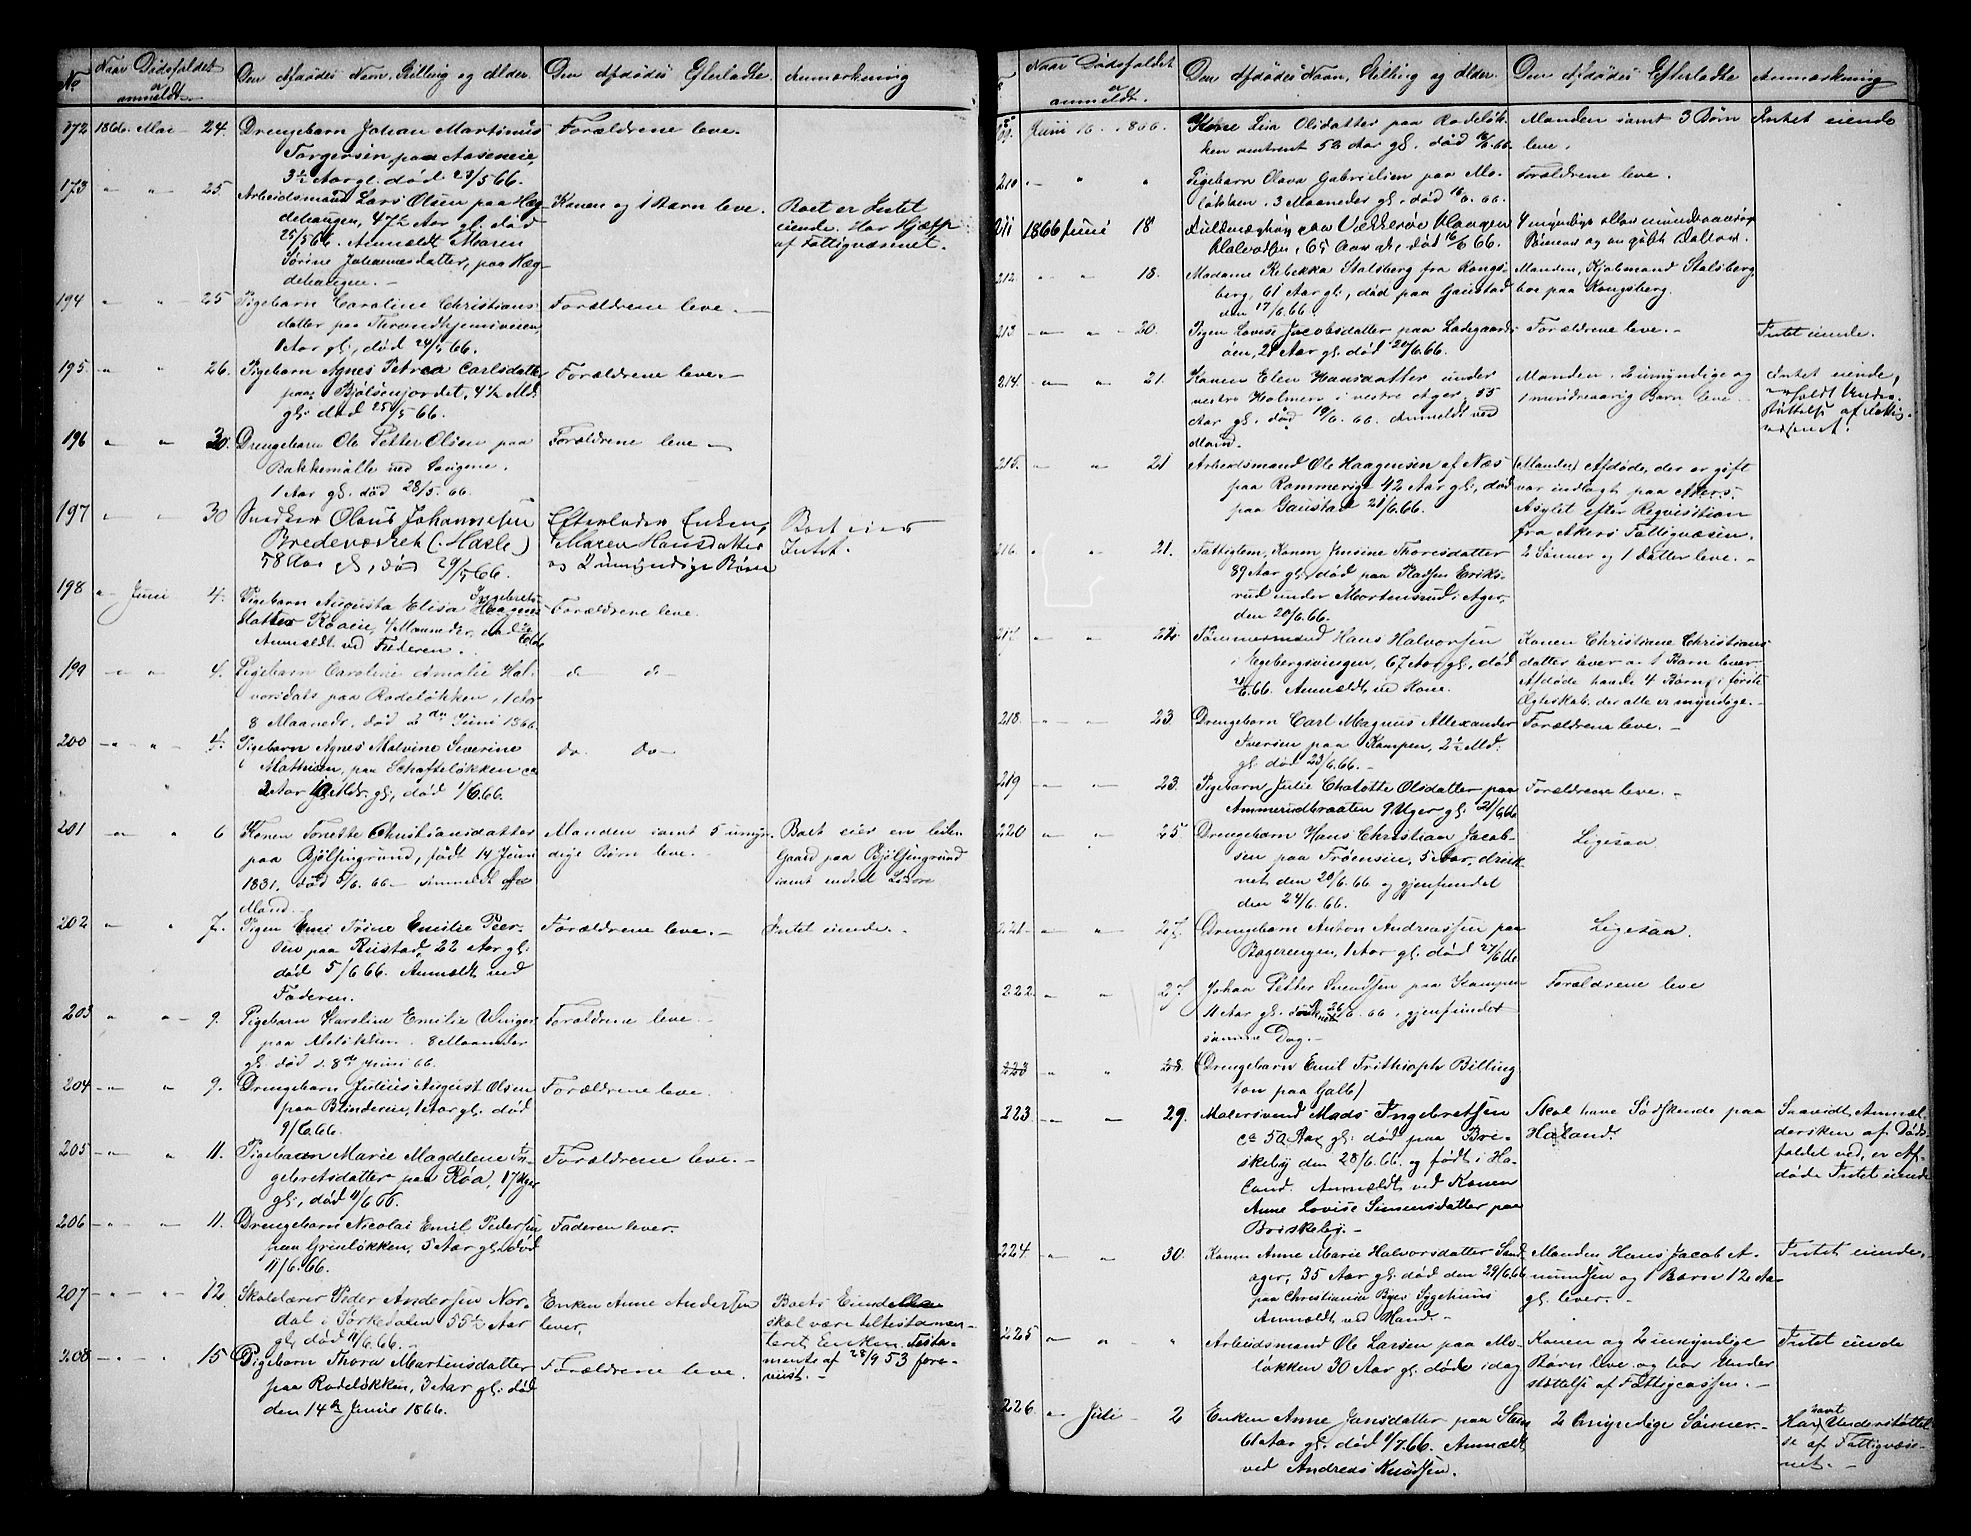 No
Naar Dødsfaldet
er
anmeldt.
Den Afdødes Navn, Stilling og Alder.
Den Afdødes Efterladte.
Anmærkning
172 1866 Mai 24. Drengebarn Johan Martinus
Torgersen, paa Aaseneie,
3½ Aar gl. død 23/5 66.
Forældrene leve.
173 " " 25. Arbeidsmand Lars Olsen paa Hæg-
dehaugen, 47½ Aar gl. død
25/5 66. Anmeldt Maren
Sørine Johannesdatter, paa Hæg-
dehaugen. -
Konen og 1 Barn leve.
Boet er Intet
eiende. Har Hjælp
af Fattigvæsenet.
194 " " 25 Pigebarn Caroline Christians-
datter paa Throndhjemsveien
1 Aar gl., død 24/5 66.
Forældrene leve. -
195. " " 26. Pigebarn Agnes Petrea Carlsdatter
paa Bjølsenjordet, 4½ Md.
gl. død 25/5 66.
Forældrene leve. -
196 " " 30. Drengebarn Ole Petter Olsen paa
Bakkemølle ved Saugene.
1 Aar gl. død 28/5. 66.
Forældrene leve -
197 - " 30 Snedker Olaus Johannesen
Bredeværket (Hasle)
58 Aar gl, død 29/5 66.
Efterlader Enken,
Maren Hansdatter
og 2 umyndige Børn
Boet eier
Intet.
198 " Juni 4. Pigebarn Augusta Elisa Ingebrets
datter Røaeie, 4 Maaneder, død
Anmeldt ved Faderen.
Forældrene leve.
199 " " 4. Pigebarn Caroline Amalie Hal-
vorsdatr paa Rodeløkken, 1 Aar
8 Maaneder, død 2den Juni 1866.
do do
200 " " 4. Pigebarn Agnes Malvine Severine
Mathisen, paa Schafteløkken ca
2 Aar 10 Mdr. gl, død 1/6 66.
do. do
201 " " 6 Konen Tonette Christiansdatter
paa Bjølsengrund, født 14 Juni
1831, død 5/6. 66 - anmeldt af
Mand. -
Manden samt 5 umyn-
dige Børn leve. -
Boet eier en liden
Gaard paa Bjølsengrund
samt endel Løsøre
202 " " 7. Pigen Emi Trine Emilie Peer-
sen paa Rustad, 22 Aar gl.
død 5/6 66. Anmeldt ved
Faderen.
Forældrene leve. -
Intet eiende. -
203 " " 9. Pigebarn Karoline Emilie Winger
paa Moløkken. 8 Maaneder
gl. død d. 8de Juni 66.
Forældrene leve.
204 " " 9. Drengebarn Julius August Olsen
paa Blindereie, 1 Aar gl. død
9/6 66.
Forældrene leve.
205 " " 11. Pigebarn Marie Magdelene In-
gebretsdatter paa Røa, 17 Uger
gl, død 11/6 66.
Forældrene leve. -
206 " " 11. Drengebarn Nicolai Emil Pedersen
paa Grünløkken, 5 Aar gl. død
11/6. 66.
Faderen lever.
207 " " 12 Skolelærer Peder Andersen Nor-
dal i Sørkedalen 55½ Aar
gl, død 11/6. 66. -
Enken Anne Andersen
lever.
Boets Eiendele
skal være tiltestamen-
teret Enken. Testa-
mente af 28/9 53 fore-
vist. -
208 " " 15 Pigebarn Thora Martinsdatter
paa Rodeløkken, 3 Aar gl. død
den 14de Juni 1866.
Forældrene leve.
Naar Dødsfaldet
er
anmeldt.
Den Afdødes Navn, Stilling og Alder.
Den Afdødes Efterladte
Anmærkning
209. Juni 16. 1866. Kone Lisa Olsdatter paa Rodeløk-
ken omtrent 52 Aar gl. død 16/6. 66.
Manden samt 3 Børn
leve.
Intet eiende
210 " " " Pigebarn Olava Gabrielsen paa Mo-
løkken. 3 Maaneder gl., død 16/6. 66.
Forældrene leve.
211 1866 Juni 18 Fuldmægtig paa Vækkerøe Haagen
Halvorsen, 65 Aar gl, død 16/6 66.
4 myndige eller mindreaarige
Sønner og en gift Datter.
212. " " 18. Madame Rebekka Stalsberg fra Kongs-
berg, 61 Aar gl, død paa Gaustad
den 17/6. 66.
Manden, Kjøbmand Stalsberg
boe paa Kongsberg.
213 " " 20. Pigen Lovise Jacobsdatter paa Ladegaards-
øen, 21 Aar gl. død 20/6. 66.
Forældrene leve. -
Intet eiende.
214. " " 21. Konen Elen Hansdatter under
vestre Holmen i vestre Ager, 55
Aar gl. død 19/6. 66. Anmeldt ved
Mand.
Manden, 2 umyndige og
1 mindreaarig Barn leve.
Intet eiende,
nydt Under-
støttelse af Fattig-
væsenet.
215. " " 21 Arbeidsmand Ole Haagensen af Næs
paa Rommerige 42 Aar gl, død
paa Gaustad 21/6. 66.
(Manden) Afdøde, der er gift
var indlagt paa Akers
Asyl efter Reqvisition
fra Akers Fattigvæsen.
216. " " 21. Fattiglem, Konen Jensine Thoresdatter
89 Aar gl. død paa Pladsen Eriks-
rud under Mortensrud i Ager,
den 20/6. 66.
2 Sønner og 1 Datter leve. -
217. " " Tømmermand Hans Halvorsen
i Egebergsvingen, 67 Aar gl, død
21/6. 66. Anmeldt ved Kone.
Konen Christiane Christians
datter lever og 1 Barn lever
Afdøde havde 4 Børn i første
Ægteskab, der alle er myndige. -
218. " " 23. Drengebarn Carl Magnus Allexander
Iversen paa Kampen, 2½ Md.
gl. død 23/6. 66. -
Forældrene leve. -
219 " " 23. Pigebarn Julie Chatotte Olsdatter paa
Ammerudbraaten 9 Uger gl. 21/6. 66
Forældrene leve. -
220 " " 25. Drengebarn Hans Christian Jacob-
sen paa Frøensie, 5 Aar, druk-
net den 20/6. 66 og gjenfundet
den 24/6. 66.
Ligesaa
221 " " 27. Drengebarn Anton Andreassen paa
Bagerengen, 1 Aar gl. død 27/6 66
Ligesaa.
222. " " 27. Johan Petter Svendsen paa Kampen
11 Aar gl. druknet 26/6. 66, gjenfundet
samme Dag. -
Forældrene leve
223 " " 28. (Drengebarn Emil Frithioph Billing
ton paa Galb)
223 " " 29. Malersvend Mads Ingebretsen
ca 50 Aar gl. død paa Bri-
skeby den 28/6. 66. og født i Ha-
land. Anmeldt ved Konen
Anne Lovise Simensdatter paa
Briskeby. -
Skal have Sødskende paa
Haland.
Saavidt Anmæl-
dersken af Døds-
faldet ved, er Af-
døde Intet eiende
224. " " 30. Konen Anne Marie Halvorsdatter Sand-
ager, 35 Aar gl. død den 29/6. 66
paa Christiania Byes Sygehuus
Anmeldt ved Mand. -
Manden Hans Jacob A-
mundsen og 1 Barn 12 Aar
gl. lever. -
Intet eiende. -
225 " " " Arbeidsmand Ole Larsen paa Mo-
løkken 30 Aar gl. døde idag
Konen og 2 umyndige
Børn leve og har Under
støttelse af Fattigcassen. -
Intet eiende
226. " Juli 2 Enken Anne Jansdatter paa Steen
61 Aar gl. død 1/7. 66. Anmeldt
ved Andreas Knudsen.
2 Umyndige Sønner. -
Har havt Understøttel-
se af Fattigvæse-
net. -